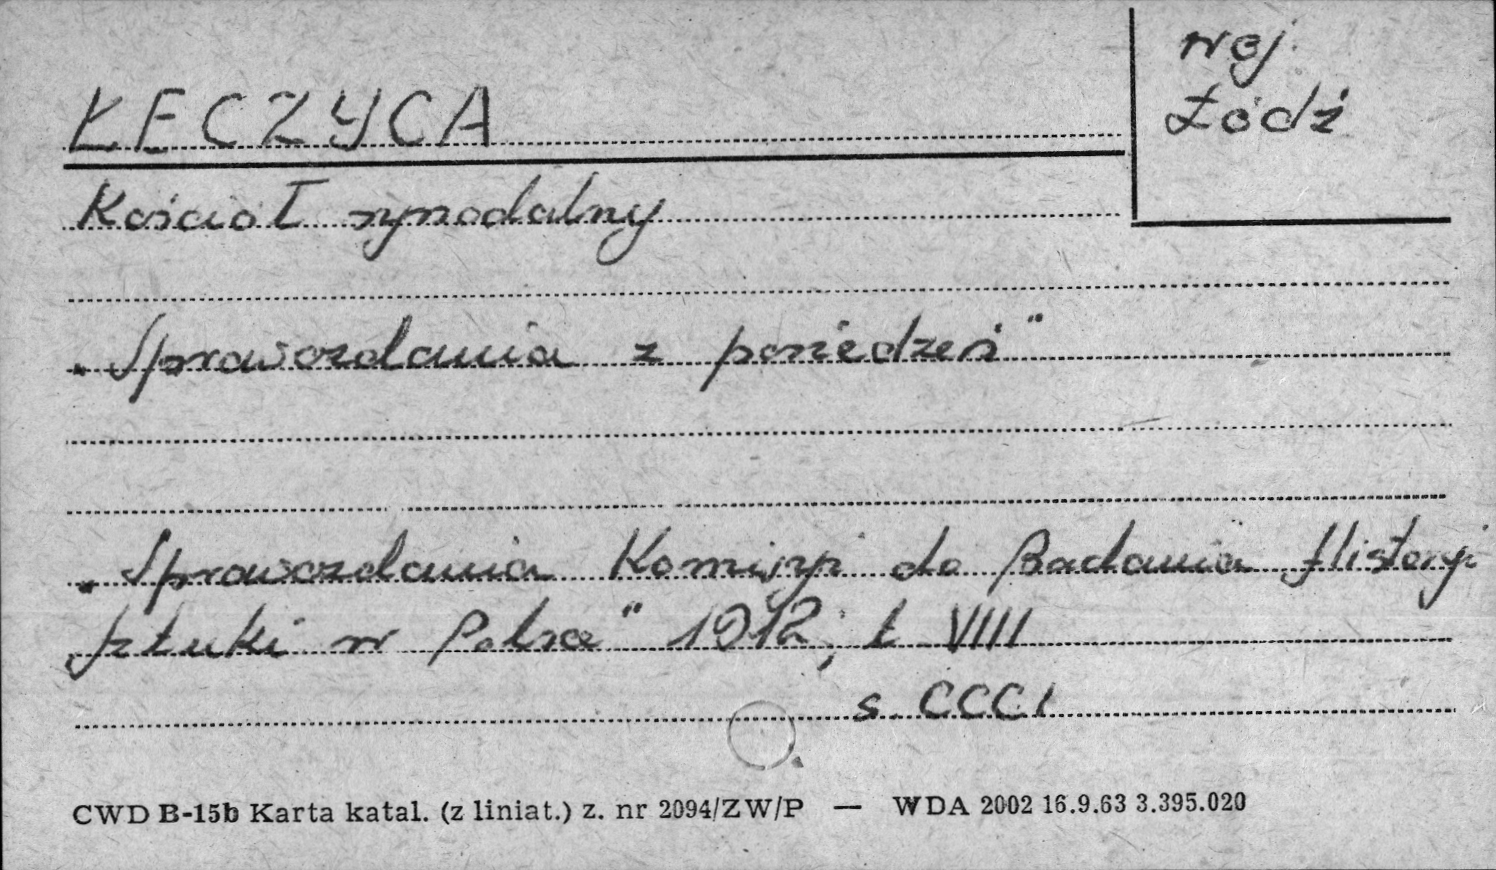 woj.
Łódź
ŁĘCZYCA
Kościoł synodalny
„Sprawozdania z posiedzeń"
„Sprawozdania Komisyi do Badania Historyi
Sztuki w Polsce" 1912, t. VIII
s. CCCI
CWD B-15b Karta katal. (z liniat.) z. nr 2094/ZW/P — WDA 2002 16.9.63 3.395.020